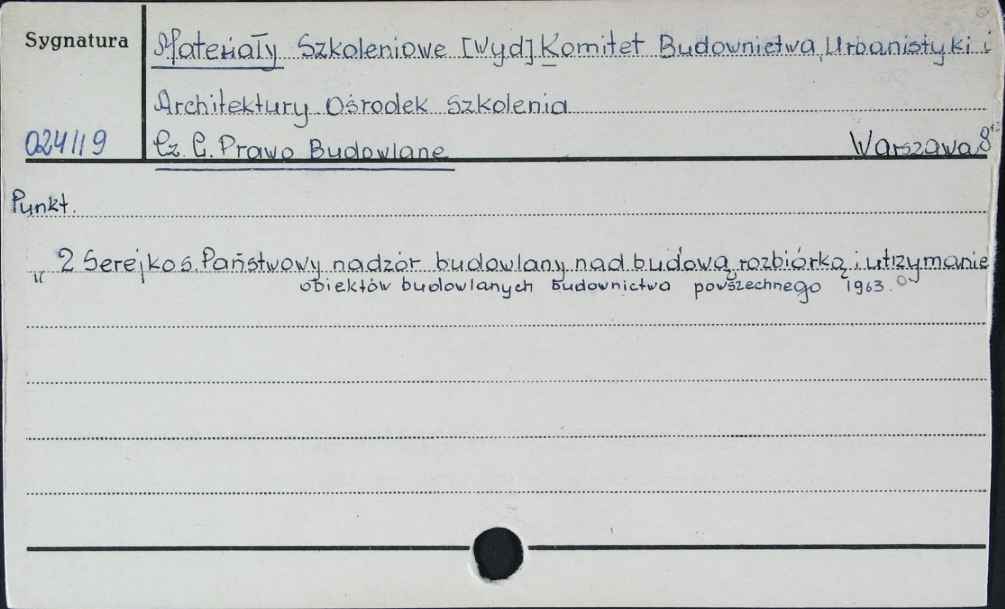 Sygnatura
Materiały Szkoleniowe [Wyd] Komitet Budownictwa, Urbanistyki i
Architektury Ośrodek Szkolenia
024119 Cz. C. Prawo Budowlane Warszawa 8°
Punkt.
" 2 Serejko S. Państwowy nadzór budowlany nad budową, rozbiórką i utrzymanie
obiektów budowlanych budownictwa powszechnego 1963.